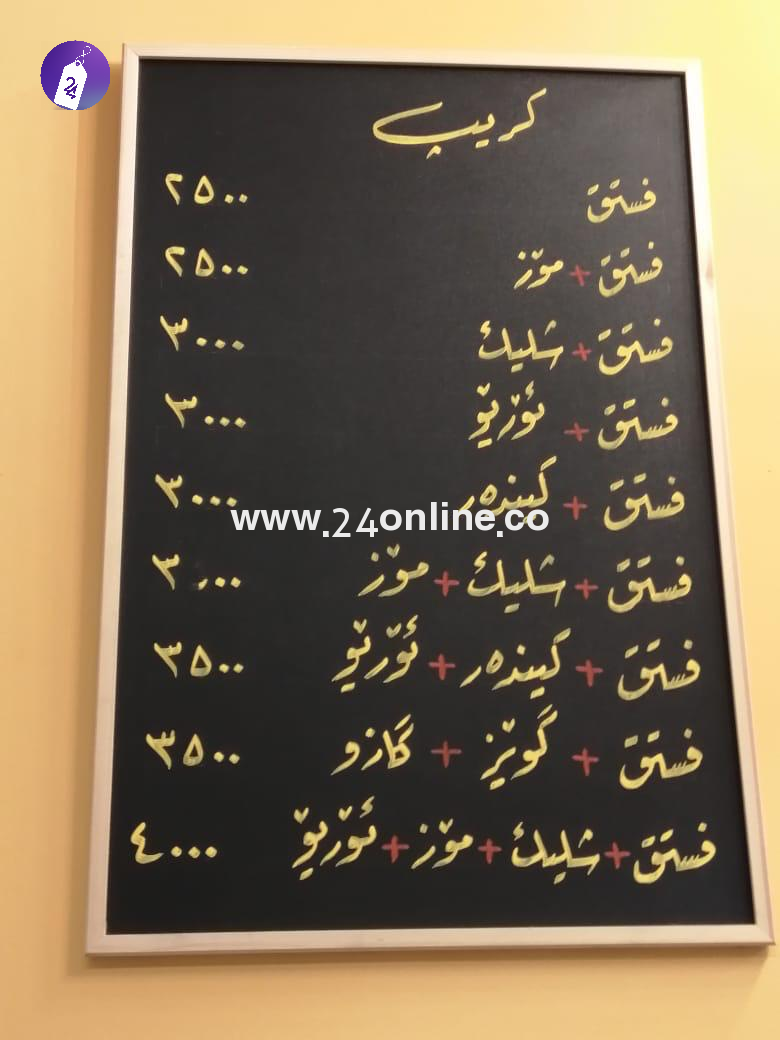 24
كريپ
فستق ٢٥٠٠
فستق + مۆز ٢٥٠٠
فستق + شليك ٣٠٠٠
فستق + ئۆريۆ ٣٠٠٠
فستق + كيندەر ٣٠٠٠
www.24online.co
فستق + شليك + مۆز ٣٠٠٠
فستق + كيندەر + ئۆريۆ ٣٥٠٠
فستق + گوێز + كازو ٣٥٠٠
فستق + شليك + مۆز + ئۆريۆ ٤٠٠٠